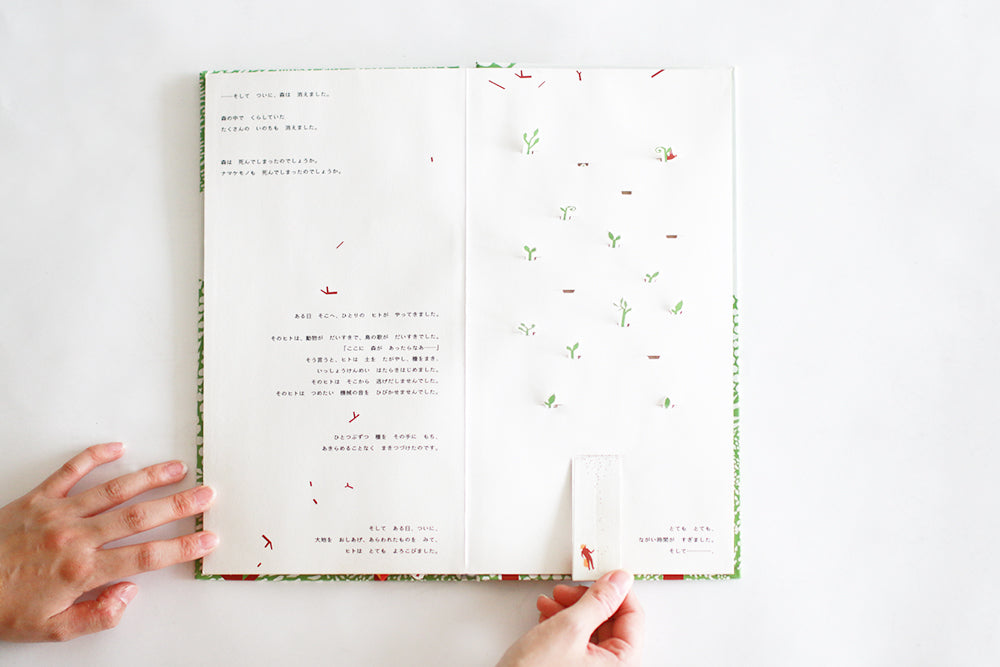 ――そして ついに、森は 消えました。
森の中で くらしていた
たくさんの いのちも 消えました。
森は 死んでしまったのでしょうか。
ナマケモノも 死んでしまったのでしょうか。
ある日 そこへ、ひとりの ヒトが やってきました。
そのヒトは、動物が だいすきで、鳥の歌が だいすきでした。
「ここに 森が あったらなあ――」
そう言うと、ヒトは 土を たがやし、種をまき、
いっしょうけんめい はたらきはじめました。
そのヒトは そこから 逃げだしませんでした。
そのヒトは つめたい 機械の音を ひびかせませんでした。
ひとつぶずつ 種を その手に もち、
あきらめることなく まきつづけたのです。
そして ある日、ついに、
大地を おしあげ、あらわれたものを みて、
ヒトは とても よろこびました。
とても とても、
ながい時間が すぎました。
そして――――、